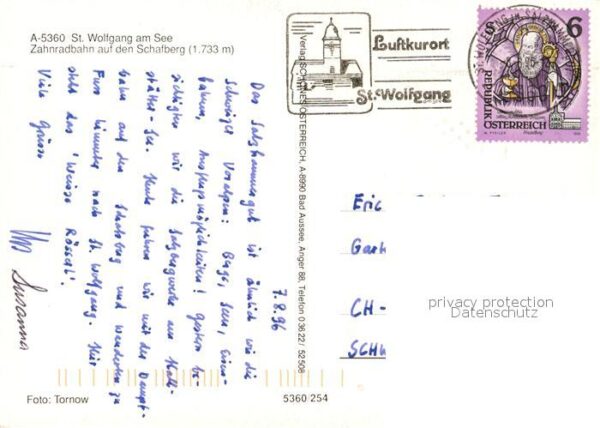 A-5360 St. Wolfgang am See
Zahnradbahn auf den Schafberg (1.733 m)
Luftkurort
St. Wolfgang
6
REPUBLIK
ÖSTERREICH
7.8.96
Das Salzkammergut ist ähnlich wie die
Schweizer Voralpen: Berge, Seen, Eisen-
bahnen, Ausflugsmöglichkeiten! Gestern be-
sichtigten wir die Salzbergwerke am Hall-
stätter-See. Heute fuhren wir mit der Dampf-
bahn auf den Schafberg und wanderten zu
Fuss hinunter nach St. Wolfgang. Hier
steht das 'Weisse Rössel'.
Viele Grüsse
Susanna
Verlag SCHÖNES ÖSTERREICH, A-8990 Bad Aussee, Anger 88, Telefon 03622/52508
Eric
CH-
privacy protection
Datenschutz
Foto: Tornow
5360 254